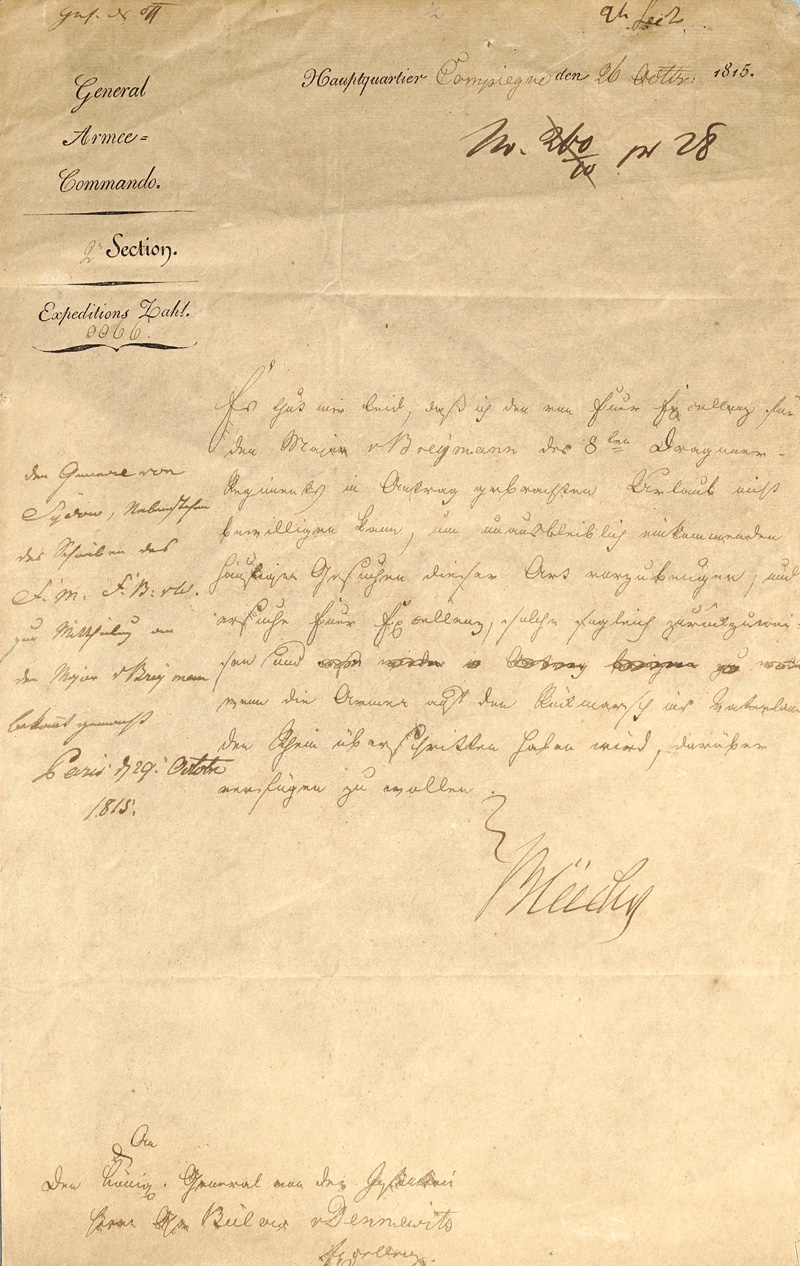 General
Armee=
Commando.
2te Section.
Expeditions Zahl.
9966.
Hauptquartier Compiegne den 26 Octbr: 1815.
Nr. 260/10 pr 28
Es thut mir leid, daß ich den von Euer Excellenz für
den Major v Breymann des 8ten Dragoner-
Regiments in Antrag gebrachten Urlaub nicht
bewilligen kann, um unausbleiblich einkommenden
häufigen Gesuchen dieser Art vorzubeugen, und
ersuche Euer Excellenz, solche sogleich zurückzuwei-
sen und
wenn die Armee auf den Rückmarsch ins Vaterland
den Rhein überschritten haben wird, darüber
verfügen zu wollen.
Blücher
dem General von
Sydow,
des Schreiben des
F. M. F. B: v W.
zur Mittheilung an
den Major v Breymann
bekannt gemacht
Paris d 29. Octobr
1815.
An
Den König. General von der Infanterie
Herrn Bülow v Dennewitz
Excellenz.